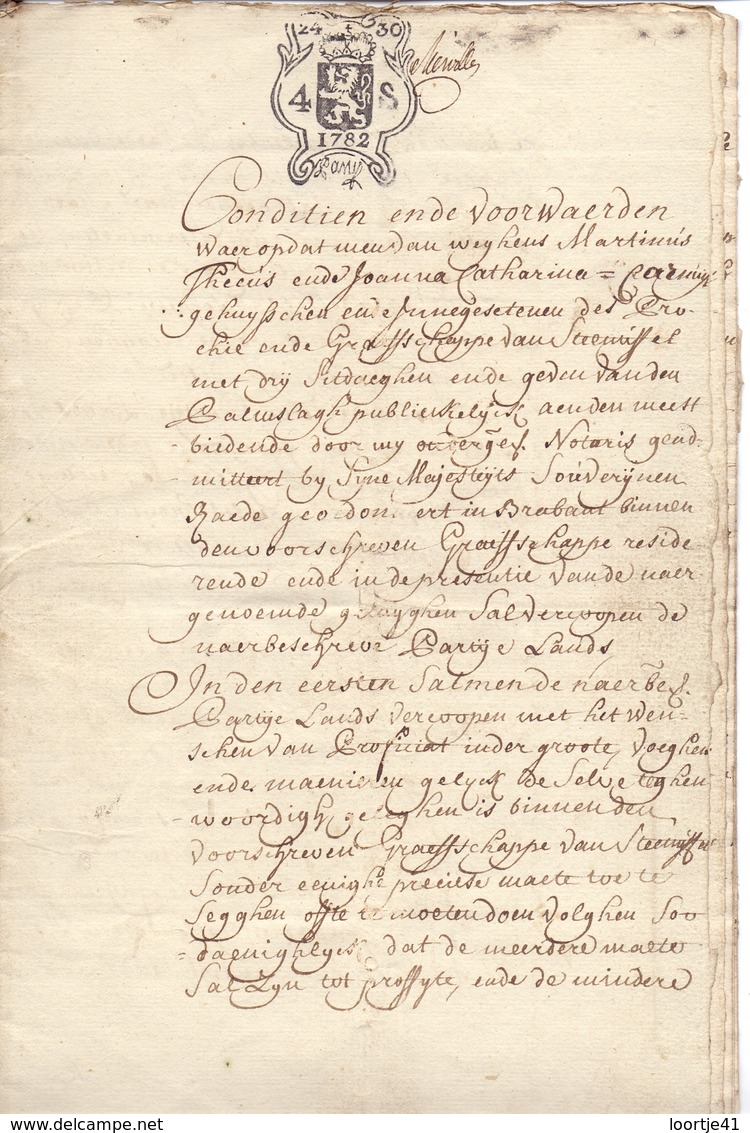 24 30
4 S
1782
Conditien ende voorwaerden
Waer op dat men van weghens Martinus
Thecus ende Joanna Catharina =
gehuysschen ende Innegesetenen des Pro-
chie ende Graeffschappe van Steenuffel
met drij Sitdaeghen ende geven van den
Palmslagh publieckelijck aen den meest
biedende door my Notaris gead-
mitteert by Syne Majesteyts Souverijnen
Raede geordonneert in Brabant binnen
den voorschreven Graeffschappe reside-
rende ende in de presentie van de naer
genoemde getuyghen Sal vercoopen de
naerbeschreve Partije Lands
In den eersten Salmen de naerbes.
Partije Lands vercoopen met het Wen-
schen van Proficiat inder groote, voeghen
ende manieren gelyck de Selve teghen-
woordigh geleghen is binnen den
voorschreven Graeffschappe van Steenuffel
Sonder eenighe preciese maete toe te
Segghen offte te moeten doen volghen Soo
=daenighlyck dat de meerdere maete
Sal Zyn tot proffyte, ende de mindere
loortje41